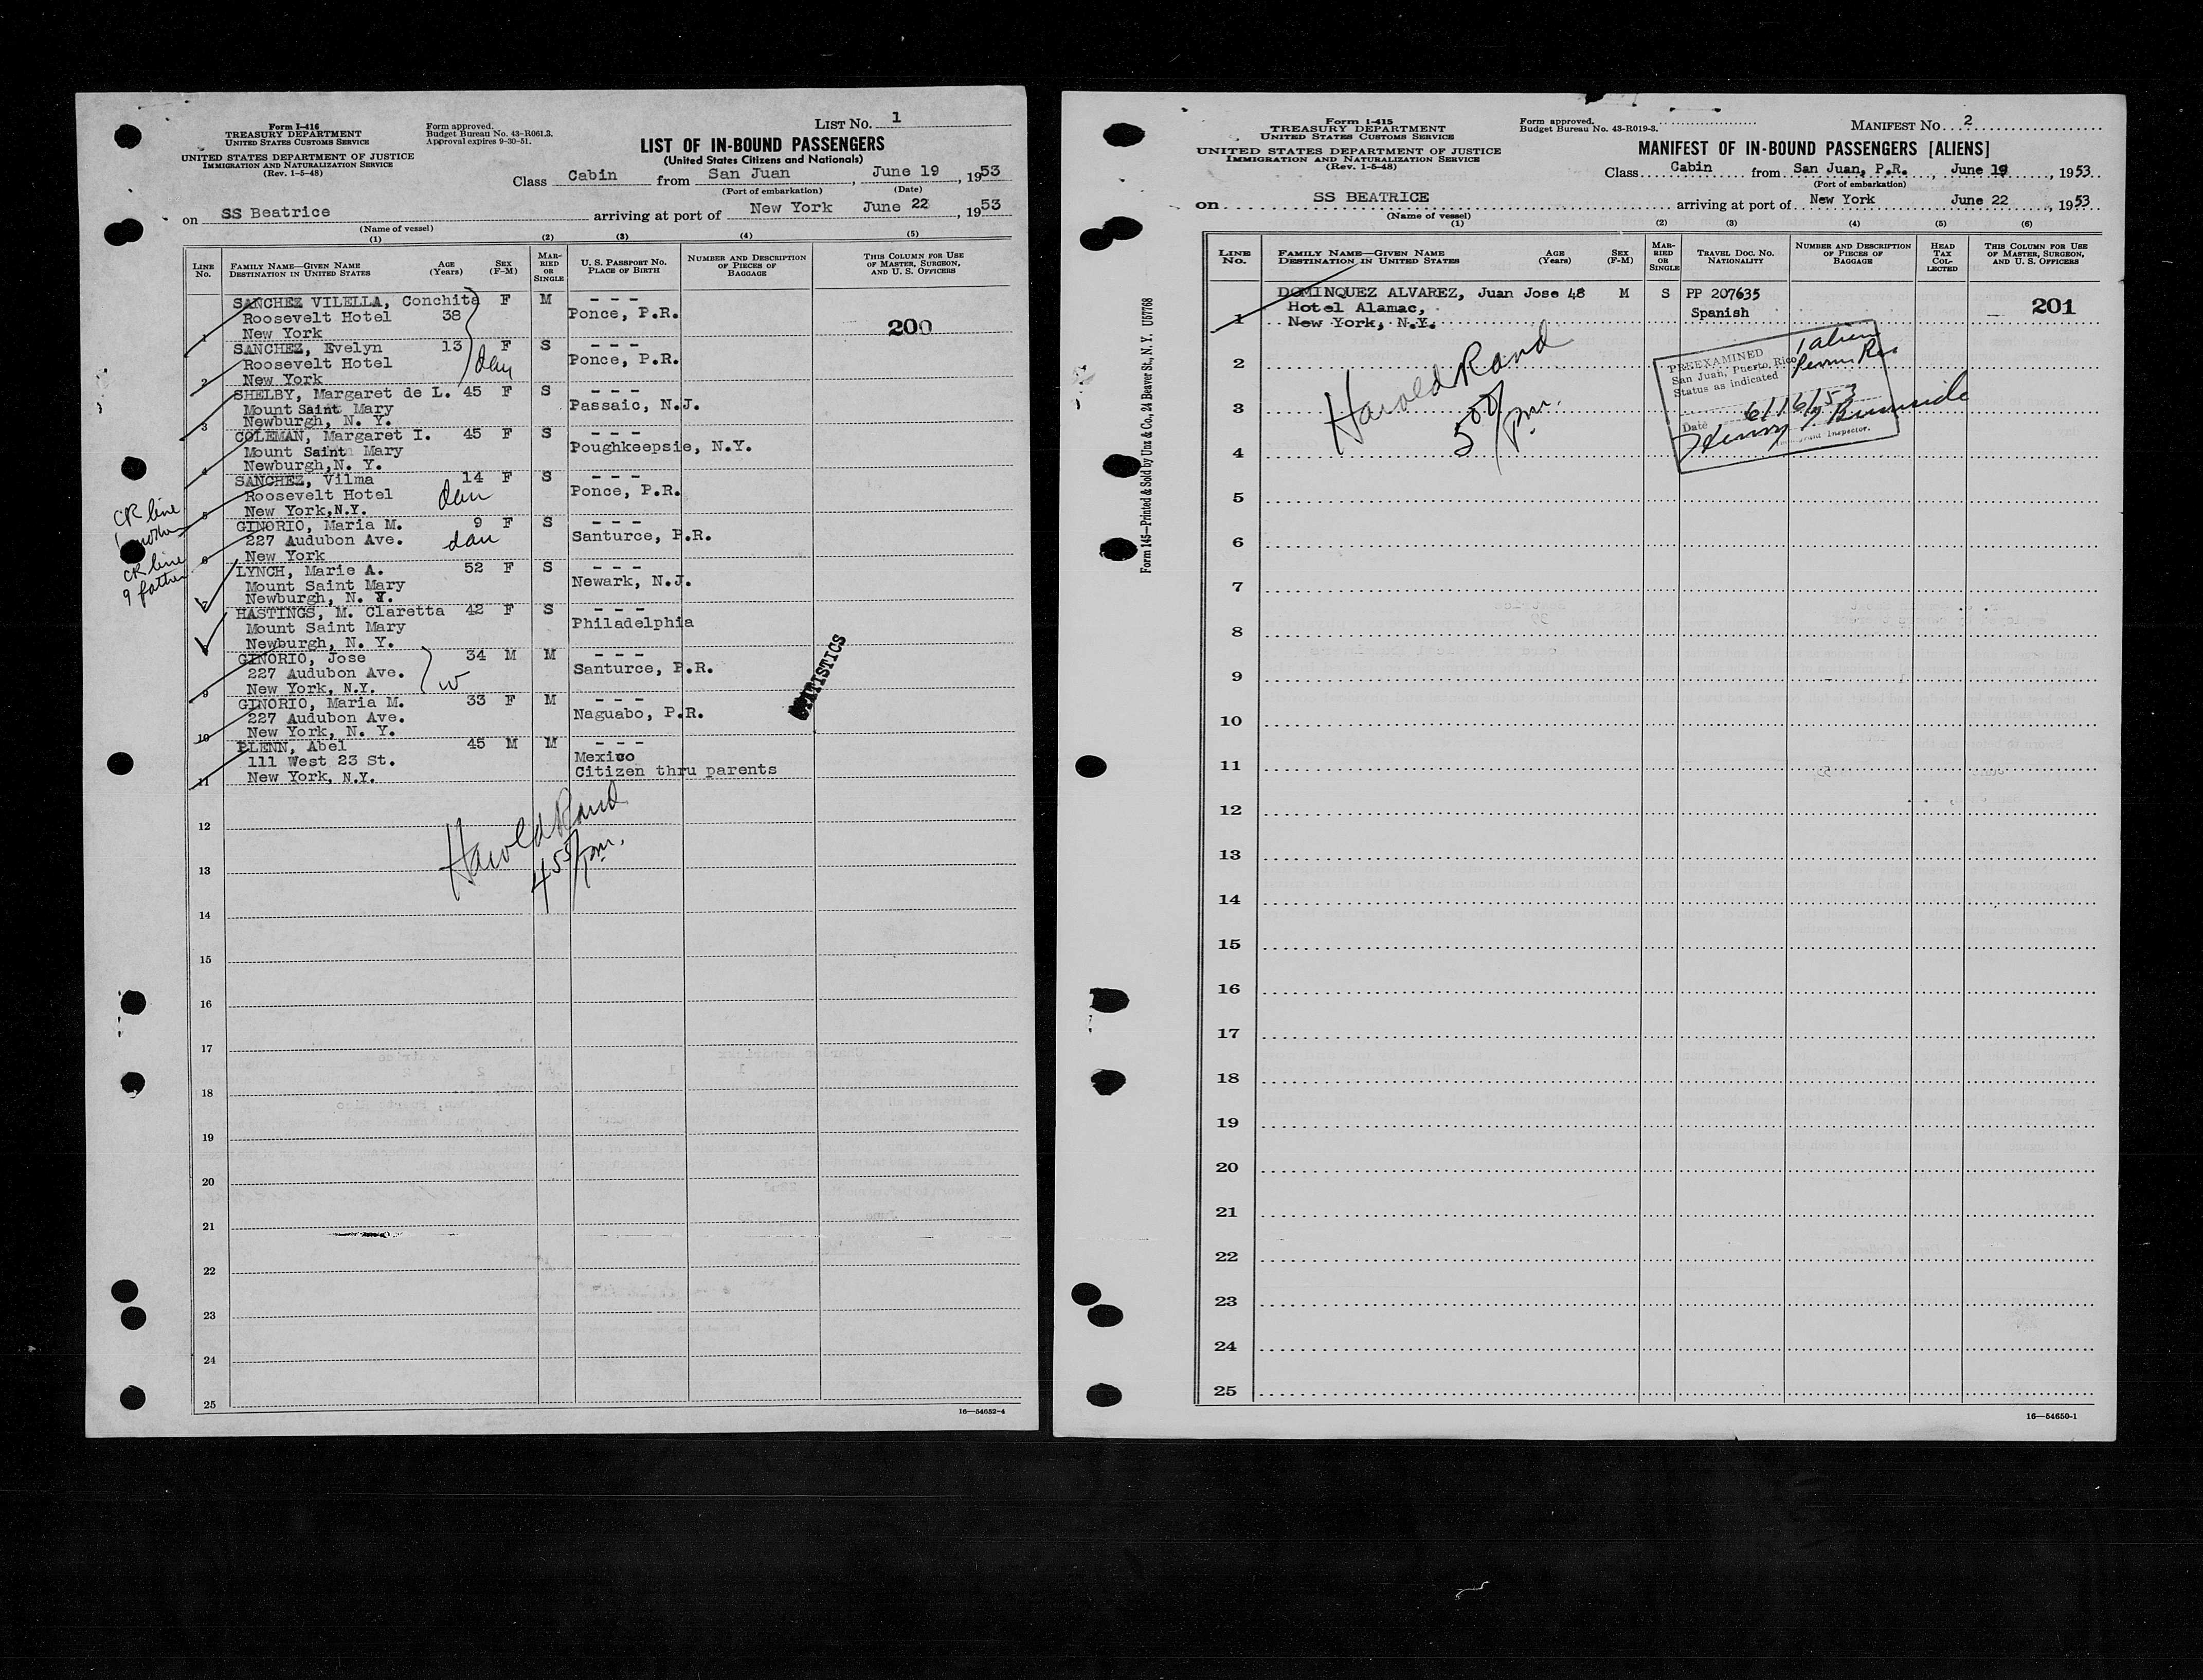 Form I-416
TREASURY DEPARTMENT
UNITED STATES CUSTOMS SERVICE
UNITED STATES DEPARTMENT OF JUSTICE
IMMIGRATION AND NATURALIZATION SERVICE
(Rev. 1-5-48)
Form approved.
Budget Bureau No. 43-R061.3.
Approval expires 9-30-51.
LIST NO. 1
LIST OF IN-BOUND PASSENGERS
(United States Citizens and Nationals)
Class Cabin from San Juan, June 19, 1953
(Port of embarkation) (Date)
on SS Beatrice arriving at port of New York June 22, 1953
(Name of vessel)
(1) (2) (3) (4) (5)
LINE NO. FAMILY NAME—GIVEN NAME DESTINATION IN UNITED STATES AGE (Years) SEX (F-M) MARRIED OR SINGLE U. S. PASSPORT NO. PLACE OF BIRTH NUMBER AND DESCRIPTION OF PIECES OF BAGGAGE THIS COLUMN FOR USE OF MASTER, SURGEON, AND U. S. OFFICERS
SANCHEZ VILELLA, Conchita F M - - -
Roosevelt Hotel 38 Ponce, P.R.
1 New York 200
SANCHEZ, Evelyn 13 F S - - -
Roosevelt Hotel dau Ponce, P.R.
2 New York
SHELBY, Margaret de L. 45 F S - - -
Mount Saint Mary Passaic, N.J.
3 Newburgh, N. Y.
COLEMAN, Margaret I. 45 F S - - -
Mount Saint Mary Poughkeepsie, N.Y.
4 Newburgh, N. Y.
SANCHEZ, Vilma 14 F S - - -
Roosevelt Hotel dau Ponce, P.R.
5 New York, N.Y.
CR line
1 mother
GINORIO, Maria M. 9 F S - - -
227 Audubon Ave. dau Santurce, P.R.
6 New York
CR line
9 father
LYNCH, Marie A. 52 F S - - -
Mount Saint Mary Newark, N.J.
7 Newburgh, N. Y.
HASTINGS, M. Claretta 42 F S - - -
Mount Saint Mary Philadelphia
Newburgh, N. Y.
GINORIO, Jose 34 M M - - -
227 Audubon Ave. w Santurce, P.R.
9 New York, N.Y.
STATISTICS
GINORIO, Maria M. 33 F M - - -
227 Audubon Ave. Naguabo, P.R.
10 New York, N. Y.
PLENN, Abel 45 M M - - -
111 West 23 St. Mexico
11 New York, N.Y. Citizen thru parents
Harold Rand
4 55/pm.
12
13
14
15
16
17
18
19
20
21
22
23
24
25
16—54652-4
Form I-415
TREASURY DEPARTMENT
UNITED STATES CUSTOMS SERVICE
UNITED STATES DEPARTMENT OF JUSTICE
IMMIGRATION AND NATURALIZATION SERVICE
(Rev. 1-5-48)
Form approved.
Budget Bureau No. 43-R019-3.
MANIFEST NO. 2
MANIFEST OF IN-BOUND PASSENGERS [ALIENS]
Class Cabin from San Juan, P.R., June 19, 1953
(Port of embarkation)
on SS BEATRICE arriving at port of New York June 22, 1953
(Name of vessel)
(1) (2) (3) (4) (5) (6)
LINE NO. FAMILY NAME—GIVEN NAME DESTINATION IN UNITED STATES AGE (Years) SEX (F-M) MARRIED OR SINGLE TRAVEL DOC. NO. NATIONALITY NUMBER AND DESCRIPTION OF PIECES OF BAGGAGE HEAD TAX COLLECTED THIS COLUMN FOR USE OF MASTER, SURGEON, AND U. S. OFFICERS
DOMINQUEZ ALVAREZ, Juan Jose 48 M S PP 207635
Hotel Alamac, Spanish 201
1 New York, N.Y.
Harold Rand
5 00/pm.
PREEXAMINED
San Juan, Puerto Rico
Status as indicated
1 alien
Perm Res
Date 6/16/53
Henry Burnside
Immigrant Inspector.
2
3
4
5
6
7
8
9
10
11
12
13
14
15
16
17
18
19
20
21
22
23
24
25
Form 145—Printed & Sold by Unz & Co., 24 Beaver St., N. Y. U57768
16—54650-1